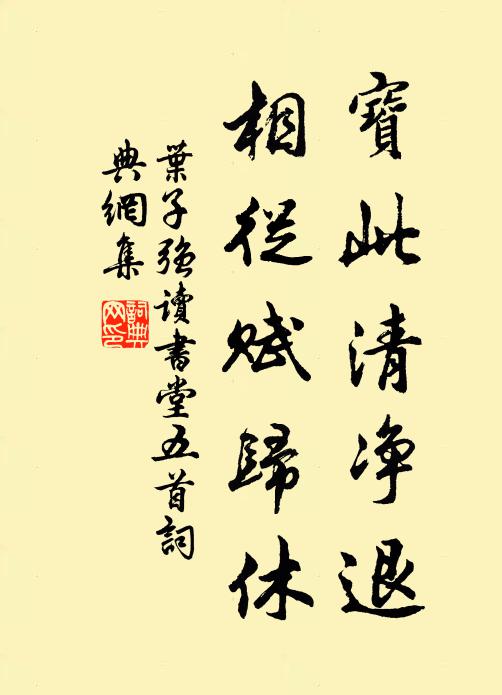 寶此清净退
相從賦歸休
葉子强讀書堂五首詞
典網集
詞典
网印